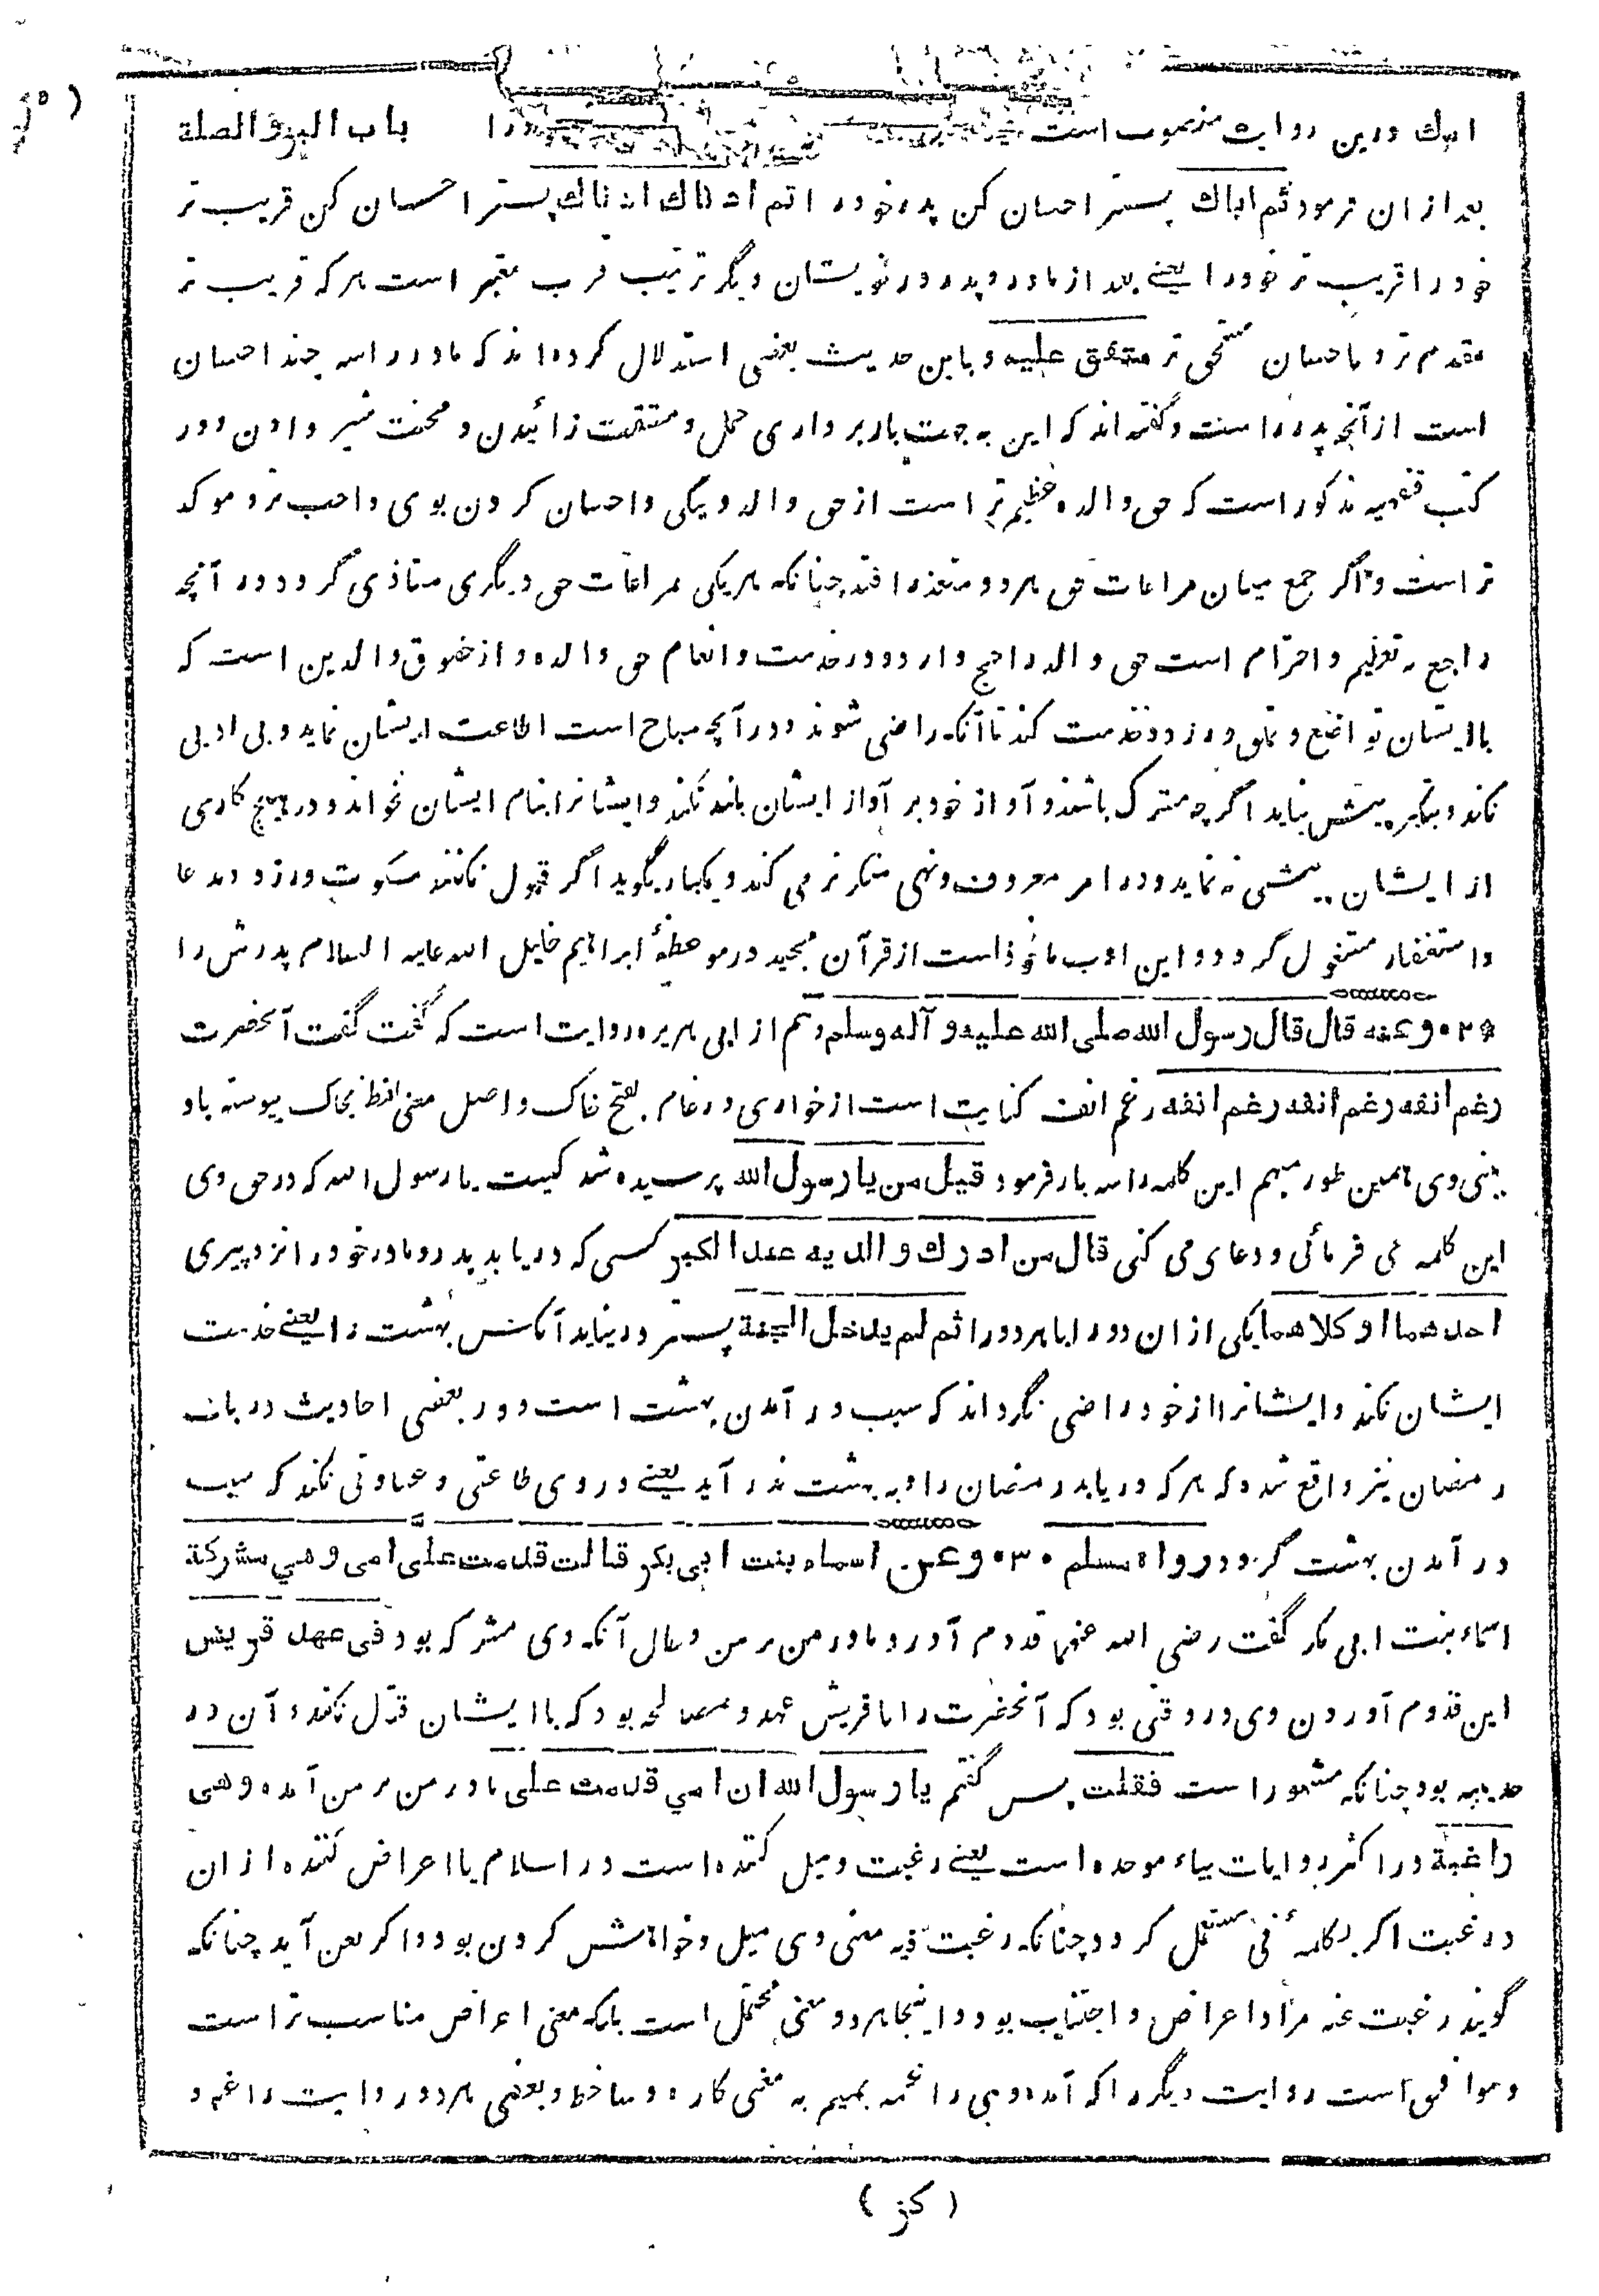 باب البر والصلة
امك درین روایت منصوب است را
بعد ازان فرمود ثم اباك پستر احسان کن پدر خود را ثم ادناك ادناك پستر احسان کن قریب تر
خود را قریب تر خود را یعنے بعد از مادر و پدر در خویشان دیگر ترتیب قرب معتبر است هر که قریب تر
مقدم تر و باحسان مستحق تر متفق علیه و باین حدیث بعضی استدلال کرده اند که مادر را سه چند احسان
است از آنچه پدر را است و گفته اند که این به جهت باربرداری حمل و مشقت زائیدن و محنت شیر دادن و در
کتب فقهیه مذکور است که حق والده عظیم تر است از حق والد و نیکی و احسان کردن بوی واجب تر و موکد
تر است و اگر جمع میان مراعات حق هر دو متعذر افتد چنانکه هر یکی بمراعات حق دیگری متاذی گردد در آنچه
راجع به تعظیم و احترام است حق والد راجح دارد و در خدمت و انعام حق والده و از حقوق والدین است که
با ایشان تواضع و تملق ورزد و خدمت کند تا آنکه راضی شوند و در آنچه مباح است اطاعت ایشان نماید و بی ادبی
نکند و بتکبر پیش نیاید اگر چه مشرک باشند و آواز خود بر آواز ایشان بلند نکند و ایشانرا بنام ایشان نخواند و در هیچ کاری
از ایشان پیشی نه نماید و در امر معروف و نهی منکر نرمی کند و یکبار بگوید اگر قبول نکنند سکوت ورزد و بدعا
و استغفار مشغول گردد و این ادب ماخوذ است از قرآن مجید در موعظهٔ ابراهیم خلیل الله علیه السلام پدرش را
* ۲ ۰ وعنه قال قال رسول الله صلی الله علیه و آله وسلم و هم از ابی هریره روایت است که گفت گفت آنحضرت
رغم انفه رغم انفه رغم انفه رغم انف کنایت است از خواری و رغام بفتح خاک و اصل معنی لفظ بخاک پیوسته باد
بینی وی همین طور مبهم این کلمه را سه بار فرمود قیل من یا رسول الله پرسیده شد کیست یا رسول الله که در حق وی
این کلمه می فرمائی و دعای می کنی قال من ادرك والدیه عند الکبر کسی که دریابد پدر و مادر خود را نزد پیری
احدهما او کلاهما یکی ازان دو را یا هر دو را ثم لم یدخل الجنة پستر در نیاید آنکس بهشت را یعنے خدمت
ایشان نکند و ایشانرا از خود راضی نگرداند که سبب در آمدن بهشت است و در بعضی احادیث در باب
رمضان نیز واقع شده که هر که دریابد رمضان را و به بهشت ندر آید یعنے در وی طاعتی و عبادتی نکند که سبب
در آمدن بهشت گردد رواه مسلم ۳ ۰ وعن اسماء بنت ابی بکر قالت قدمت علی امی وهی مشرکة
اسماء بنت ابی بکر گفت رضی الله عنهما قدوم آورد مادر من بر من و حال آنکه وی مشرکه بود فی عهد قریش
این قدوم آوردن وی در وقتی بود که آنحضرت را با قریش عهد و مصالحه بود که با ایشان قتال نکند و آن در
حدیبیه بود چنانکه مشهور است فقلت پس گفتم یا رسول الله ان امی قدمت علی مادر من بر من آمده وهی
راغبة در اکثر روایات بباء موحده است یعنے رغبت و میل کننده است در اسلام یا اعراض کننده ازان
و رغبت اگر بکلمهٔ فی مستعمل گردد چنانکه رغبت فیه معنی وی میل و خواهش کردن بود و اگر بعن آید چنانکه
گویند رغبت عنه مراد اعراض و اجتناب بود و اینجا هر دو معنی محتمل است بلکه معنی اعراض مناسب تر است
و موافق است روایت دیگر را که آمده وهی راغمه بمیم به معنی کاره و ساخط و بعضی هر دو روایت راغبه و
( کز )